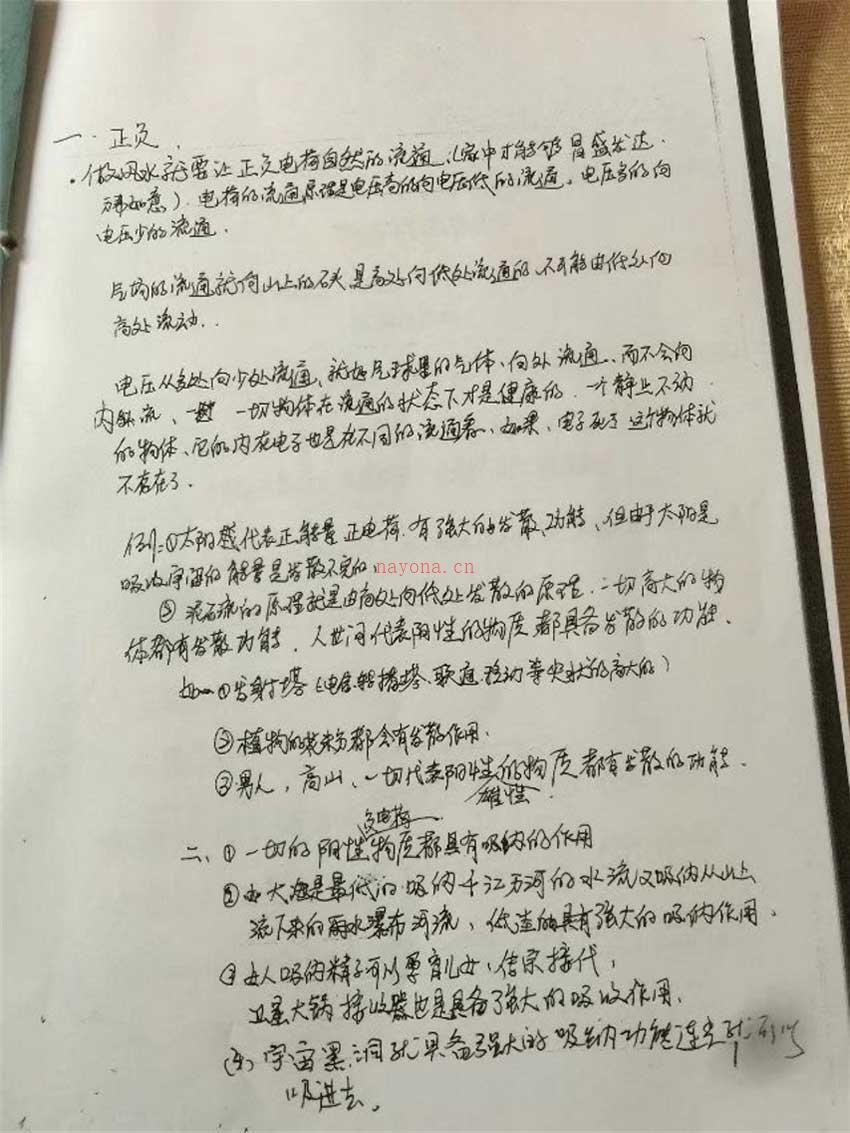 一. 正负.
. 做风水就要让正负电荷自然的流通.(家中才能够冒盛发达.
万事如意). 电荷的流通原理是电压高的向电压低的流通. 电压多的向
电压少的流通.
气场的流通就向山上的石头是高处向低处流通的. 不可能由低处向
高处流动..
电压从多处向少处流通、就好气球里的气体、向外流通、而不会向
内 流、 一切物体在流通的状态下才是健康的. 一个静止不动
的物体、它的内在电子也是在不同的流通着、如果、电子死了这个物体就
不存在了.
例=①太阳 代表正能量 正电荷. 有强大的发散功能、但由于太阳是
吸收宇宙的能量是发散不完的.
② 泥石流的原理就是由高处向低处发散的原理. 一切高大的物
体都有发散功能. 人世间代表阳性的物质都具备发散的功能.
如 ①发射塔 (电信转播塔、联通、移动等尖状的高大的)
②植物的花朵 都含有发散作用.
③男人, 高山、一切代表阳性的物质都有发散的功能.
雄性.
负电荷
二、① 一切的阴性物质都具有吸纳的作用
② 大海是最低的 吸纳千江万河的水流又吸纳从山上
流下来的雨水瀑布河流, 低洼的具有强大的吸纳作用.
③ 女人吸纳精子可以孕育儿女、传宗接代,
卫星大锅接收器也是具备了强大的吸收作用.
(4) 宇宙黑洞就具备强大的吸纳功能连光就可以
吸进去.
nayona.cn